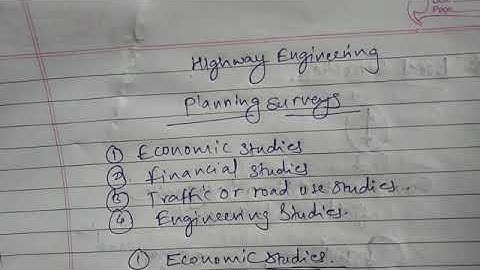 Highway Engineering
Planning Surveys
① Economic Studies
② Financial Studies
③ Traffic or road use studies..
④ Engineering Studies.
① Economic Studies.